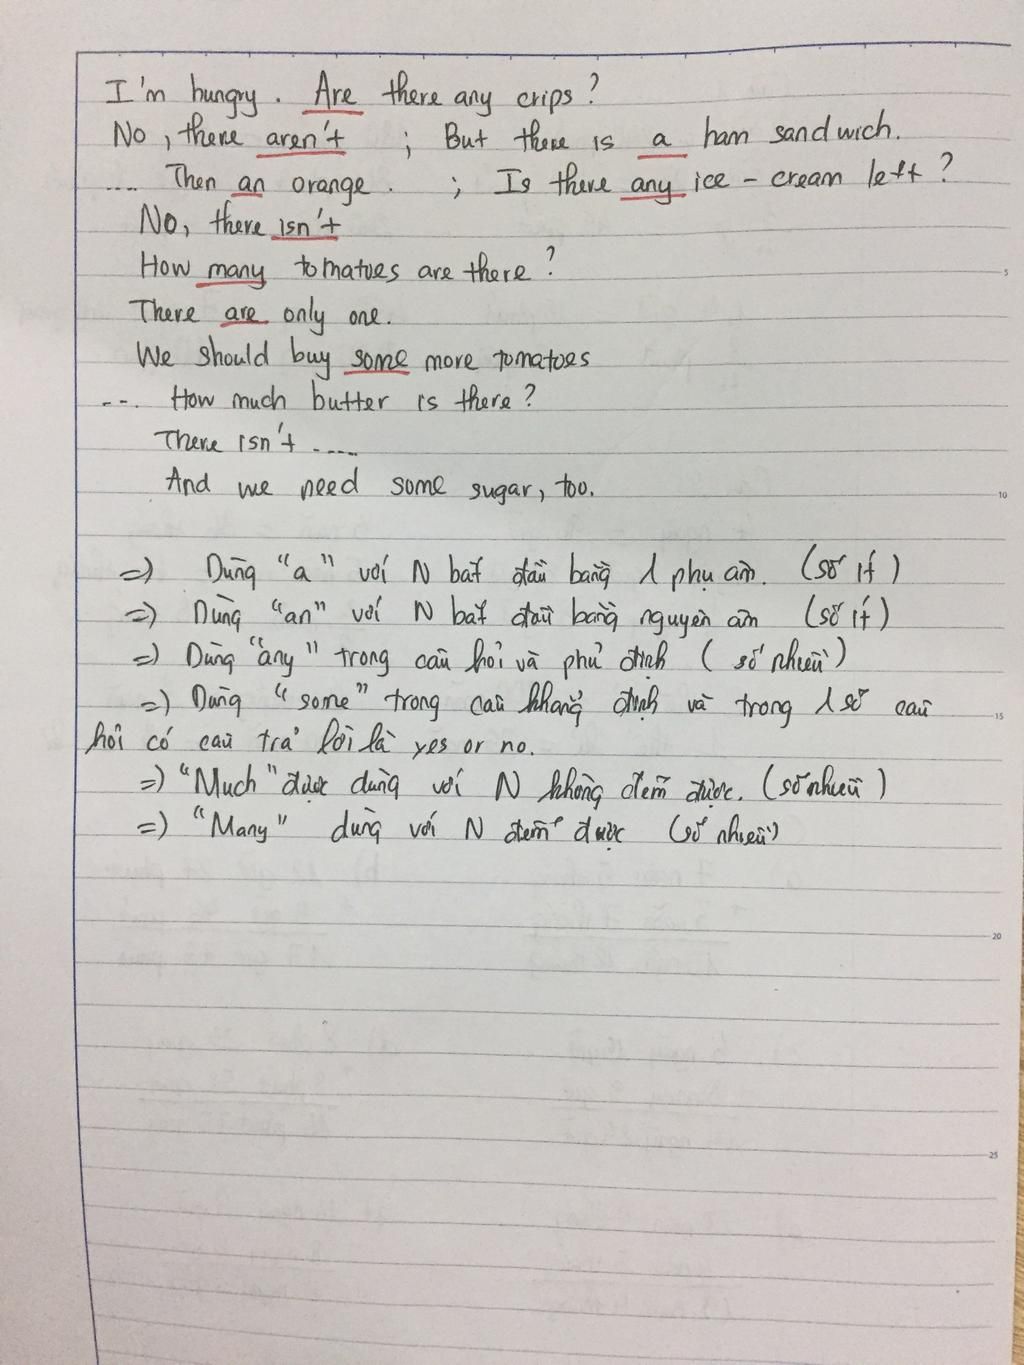 I'm hungry. Are there any crips?
No, there aren't ; But there is a ham sandwich.
.... Then an orange. ; Is there any ice - cream left?
No, there isn't
How many tomatoes are there?
There are only one.
We should buy some more tomatoes
--. How much butter is there?
There isn't .....
And we need some sugar, too.
=) Dùng "a" với N bắt đầu bằng 1 phụ âm. (số ít)
=) Dùng "an" với N bắt đầu bằng nguyên âm (số ít)
=) Dùng "any" trong câu hỏi và phủ định (số nhiều)
=) Dùng "some" trong câu khẳng định và trong 1 số câu
hỏi có câu trả lời là yes or no.
=) "Much" được dùng với N không đếm được. (số nhiều)
=) "Many" dùng với N đếm được (số nhiều)
5
10
15
20
25